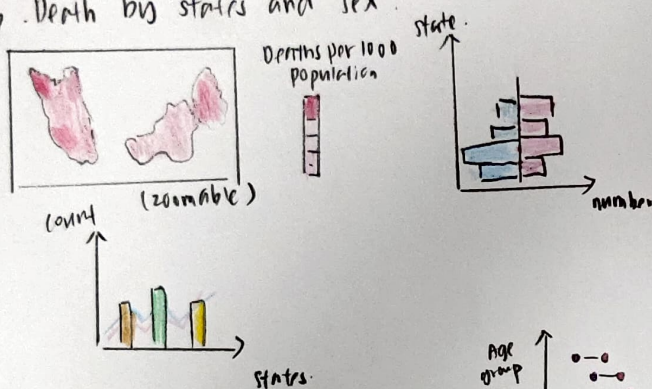 . Death by states and sex.
Deaths per 1000
population
state.
(zoomable)
number
count
states.
Age
group